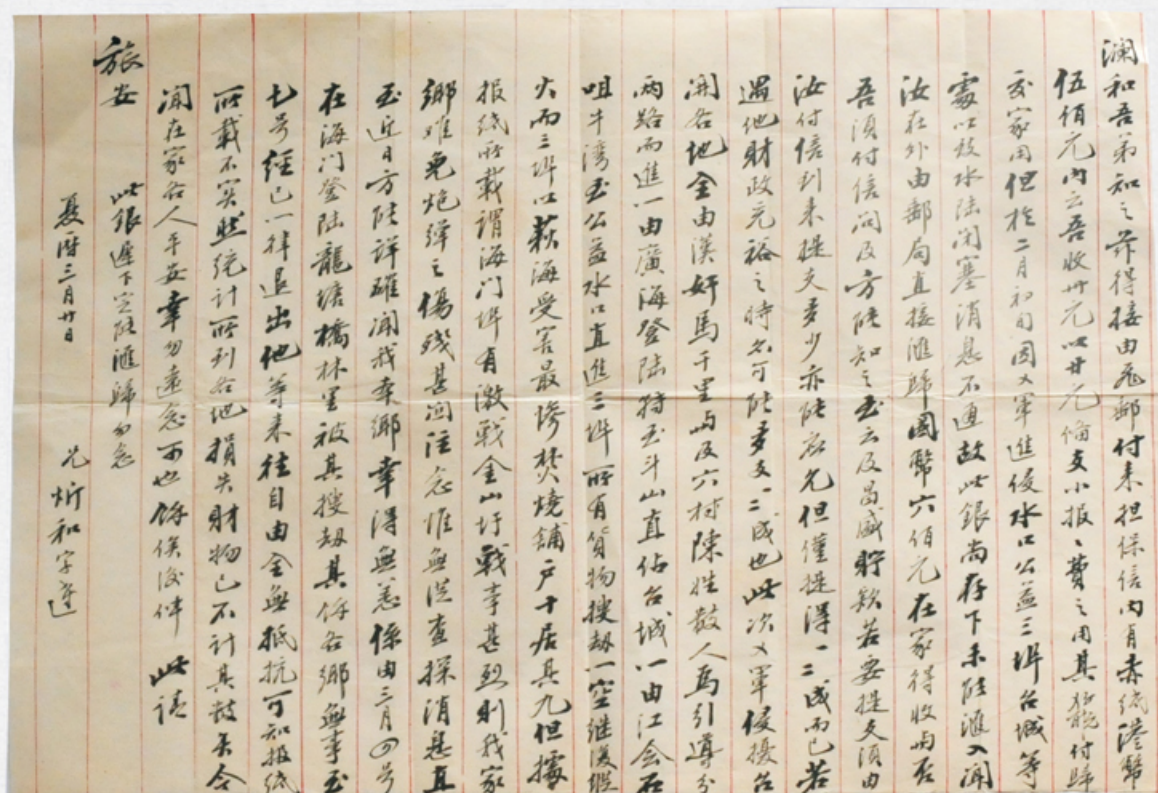 瀾和吾弟知之茲得接由飛郵付来担保信内有赤紙港幣
伍佰元内云吾收卅元以廿元俻支小报〻費之用其餘付歸
交家用但於二月初旬因乂軍進侵水口公益三埠台城等
處以致水陆闭塞消息不通故此銀尚存下未能滙入闻
汝在外由郵局直接滙歸國幣六佰元在家得收与否
吾須付信问及方能知之至云及昌盛貯欵若要提支須由
汝付信到来提支多少亦能应允但僅提得一二成而已若
遇他財政充裕之時多可能多支一二成也此次乂軍侵擾台
開各地全由漢奸馬千里与及六村陳姓数人為引導分
兩路而進一由廣海登陆特至斗山直佔台城一由江会石
咀牛湾至公益水口直進三埠所有貨物搜劫一空继後縱
火而三埠以荻海受害最慘焚燒舖户十居其九但據
报紙所載謂海门埠有激戰金山圩戰事甚烈則我家
鄉难免炮弹之傷殘甚洄注念惟無從查探消息直
至近日方能詳確闻我本鄉幸得無恙係由三月四号
在海门登陆龍塘橋林里被其搜劫其餘各鄉無事至
七号經已一律退出他等来往自由全無抵抗可知报紙
所載不实然统计所到各地損失財物已不计其数矣今
闻在家各人平安幸勿遠念可也餘俟後伸　此請
旅安
此銀遲下定能滙歸勿念
兄炘和字達
夏曆三月廿日